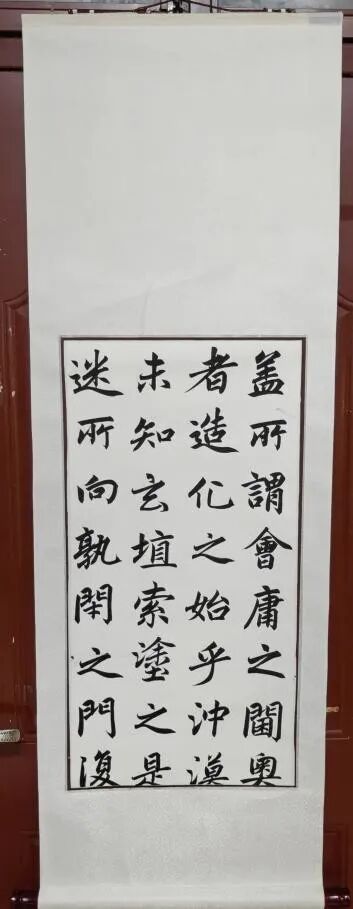 盖所謂會庸之閫奧
者造化之始乎沖漠
未知玄埴索塗之是
迷所向孰閑之門復